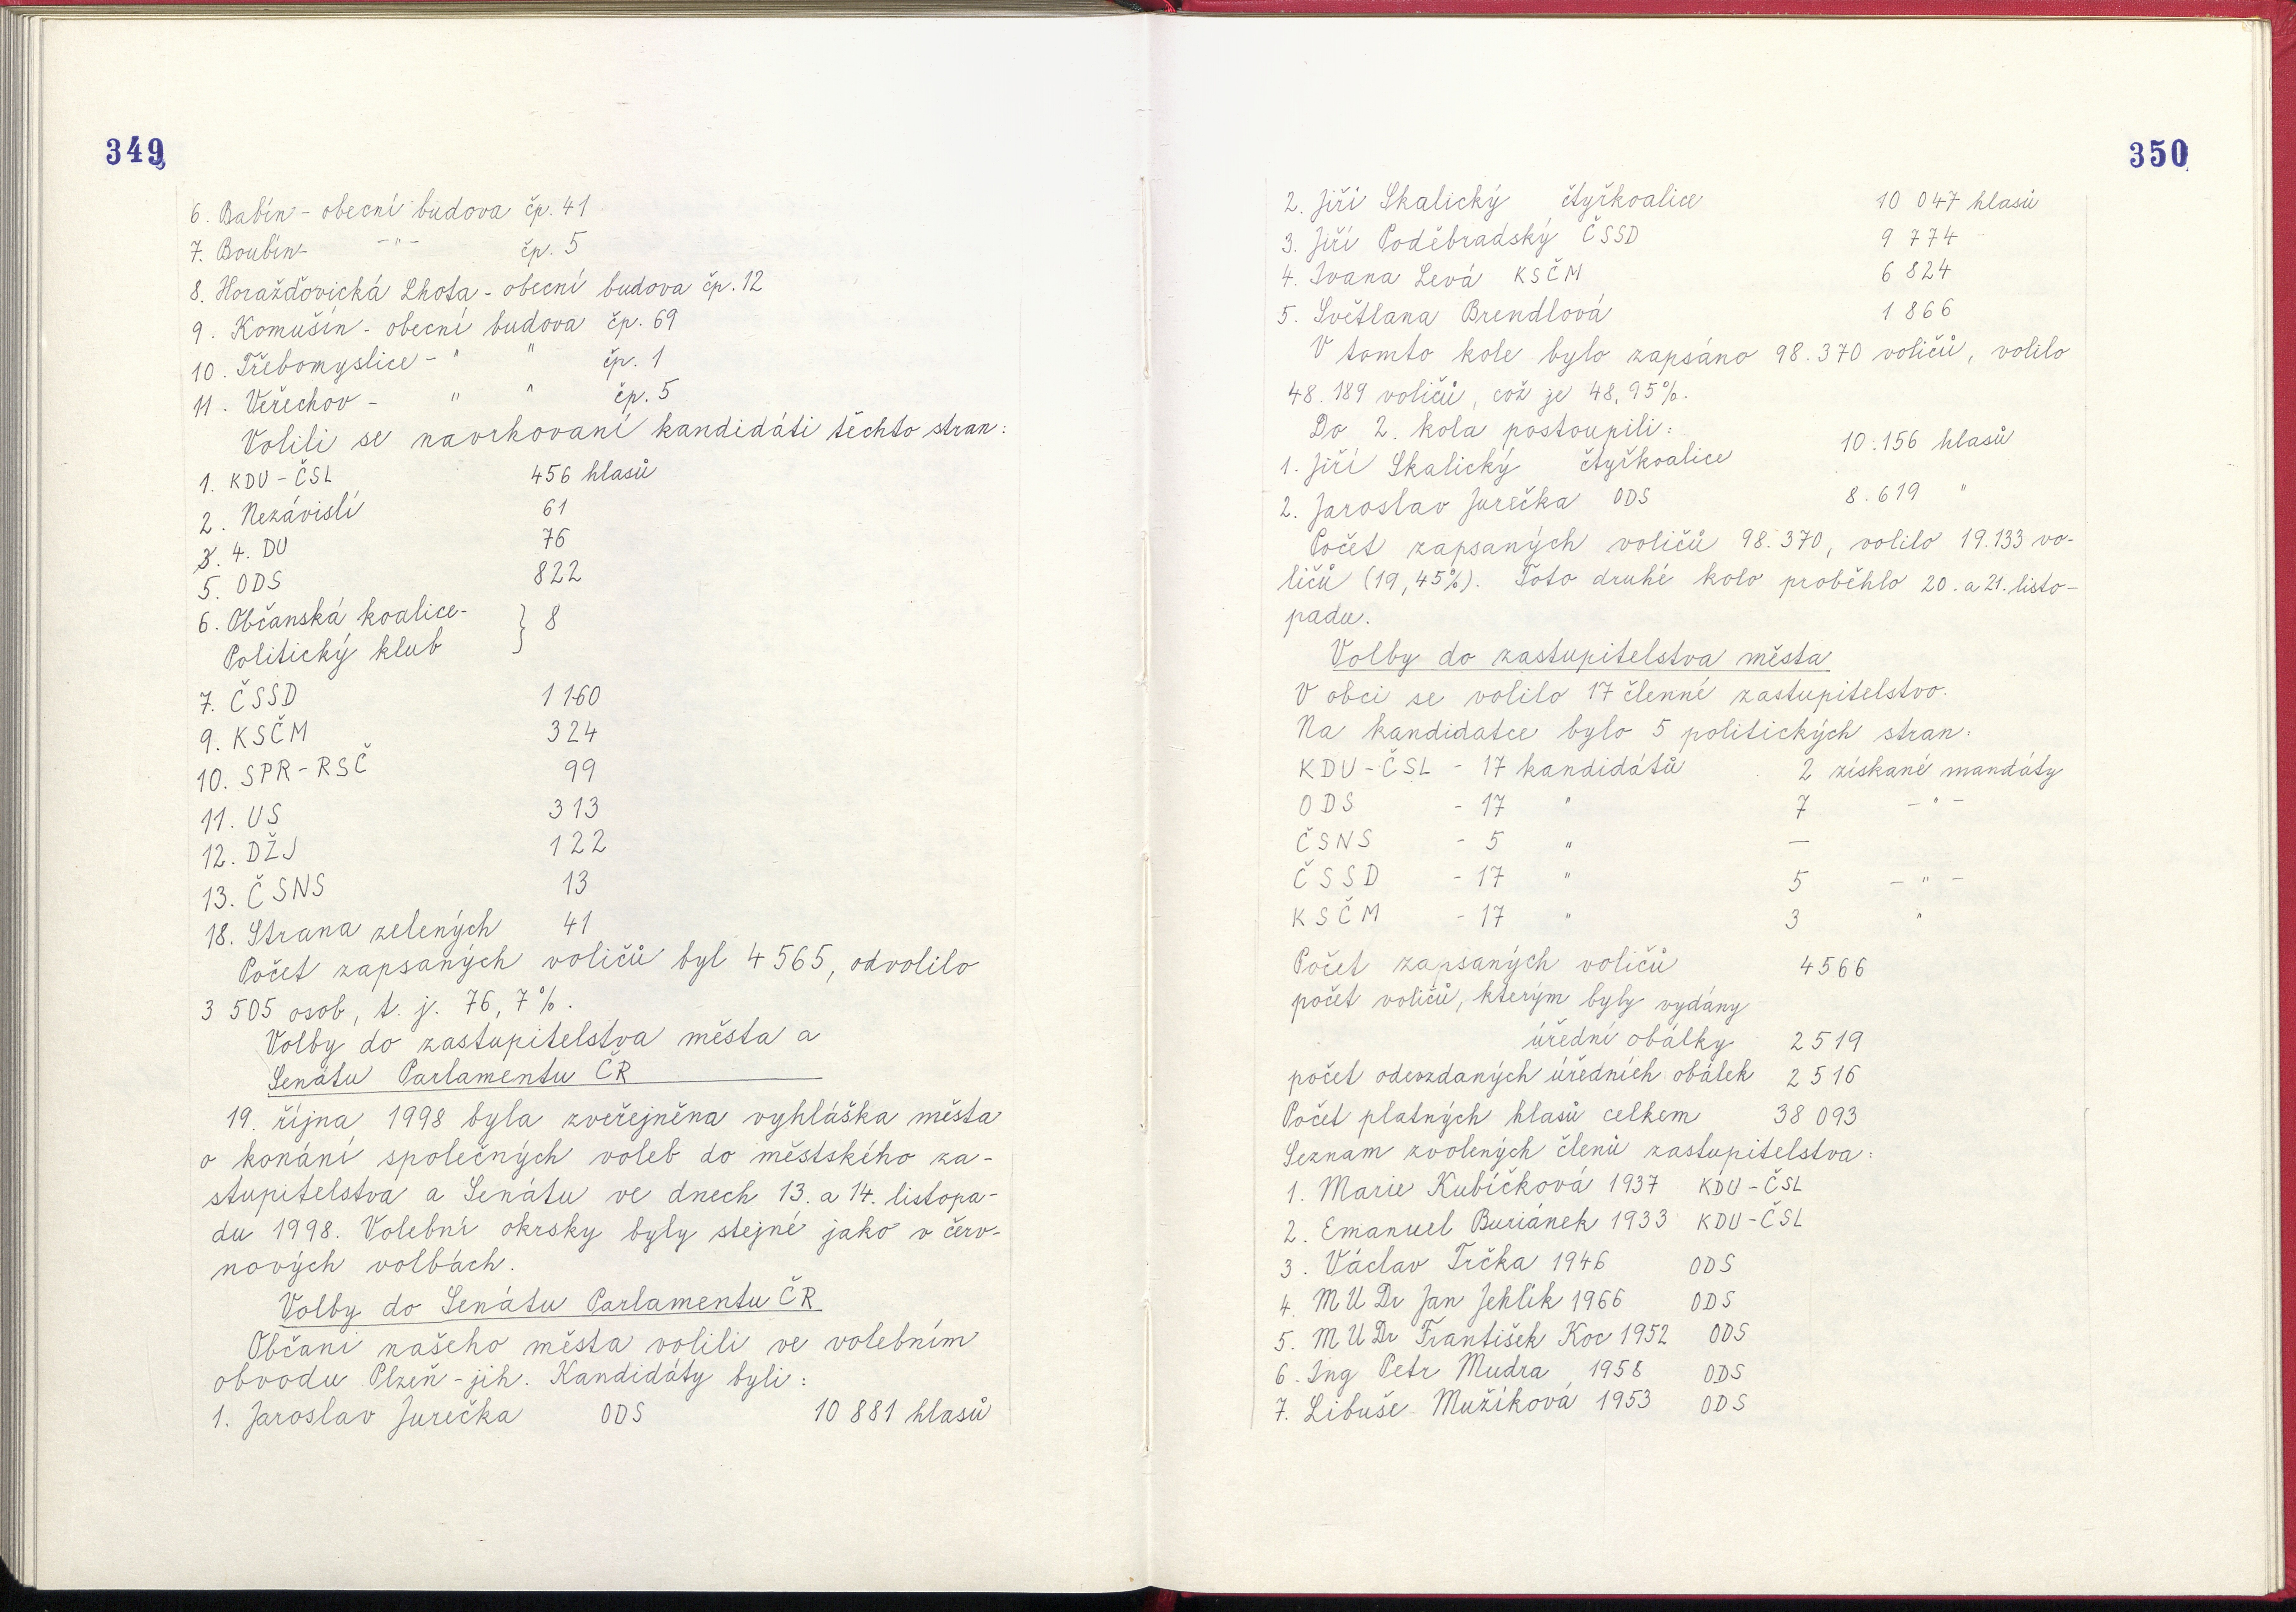 349
6. Babín - obecní budova čp. 41
7. Boubín -"- čp. 5
8. Horažďovická Lhota - obecní budova čp. 12
9. Komušín - obecní budova čp. 69
10. Třebomyslice - " " čp. 1
11. Veřechov - " " čp. 5
Volili se navrhovaní kandidáti těchto stran:
1. KDU-ČSL 456 hlasů
2. Nezávislí 61
3. 4. DU 76
5. ODS 822
6. Občanská koalice-
Politický klub } 8
7. ČSSD 1160
9. KSČM 324
10. SPR-RSČ 99
11. US 313
12. DŽJ 122
13. ČSNS 13
18. Strana zelených 41
Počet zapsaných voličů byl 4565, odvolilo
3 505 osob, t. j. 76,7%.
Volby do zastupitelstva města a
Senátu Parlamentu ČR
19. října 1998 byla zveřejněna vyhláška města
o konání společných voleb do městského za-
stupitelstva a Senátu ve dnech 13. a 14. listopa-
du 1998. Volební okrsky byly stejné jako v červ-
nových volbách.
Volby do Senátu Parlamentu ČR
Občani našeho města volili ve volebním
obvodu Plzeň-jih. Kandidáty byli:
1. Jaroslav Jurečka ODS 10 881 hlasů
350
2. Jiří Skalický čtyřkoalice 10 047 hlasů
3. Jiří Poděbradský ČSSD 9 774
4. Ivana Levá KSČM 6 824
5. Světlana Brendlová 1 866
V tomto kole bylo zapsáno 98.370 voličů, volilo
48.189 voličů, což je 48,95%.
Do 2. kola postoupili:
1. Jiří Skalický čtyřkoalice 10.156 hlasů
2. Jaroslav Jurečka ODS 8.619 "
Počet zapsaných voličů 98.370, volilo 19.133 vo-
ličů (19,45%). Toto druhé kolo proběhlo 20. a 21. listo-
padu.
Volby do zastupitelstva města
V obci se volilo 17 členné zastupitelstvo.
Na kandidatce bylo 5 politických stran:
KDU-ČSL - 17 kandidátů 2 získané mandáty
ODS - 17 " 7 -"-
ČSNS - 5 " —
ČSSD - 17 " 5 -"-
KSČM - 17 " 3 "
Počet zapsaných voličů 4566
počet voličů, kterým byly vydány
úřední obálky 2519
počet odevzdaných úředních obálek 2516
Počet platných hlasů celkem 38 093
Seznam zvolených členů zastupitelstva:
1. Marie Kubíčková 1937 KDU-ČSL
2. Emanuel Buriánek 1933 KDU-ČSL
3. Václav Trčka 1946 ODS
4. MUDr Jan Jehlík 1966 ODS
5. MUDr František Koc 1952 ODS
6. Ing Petr Mudra 1958 ODS
7. Libuše Mužíková 1953 ODS